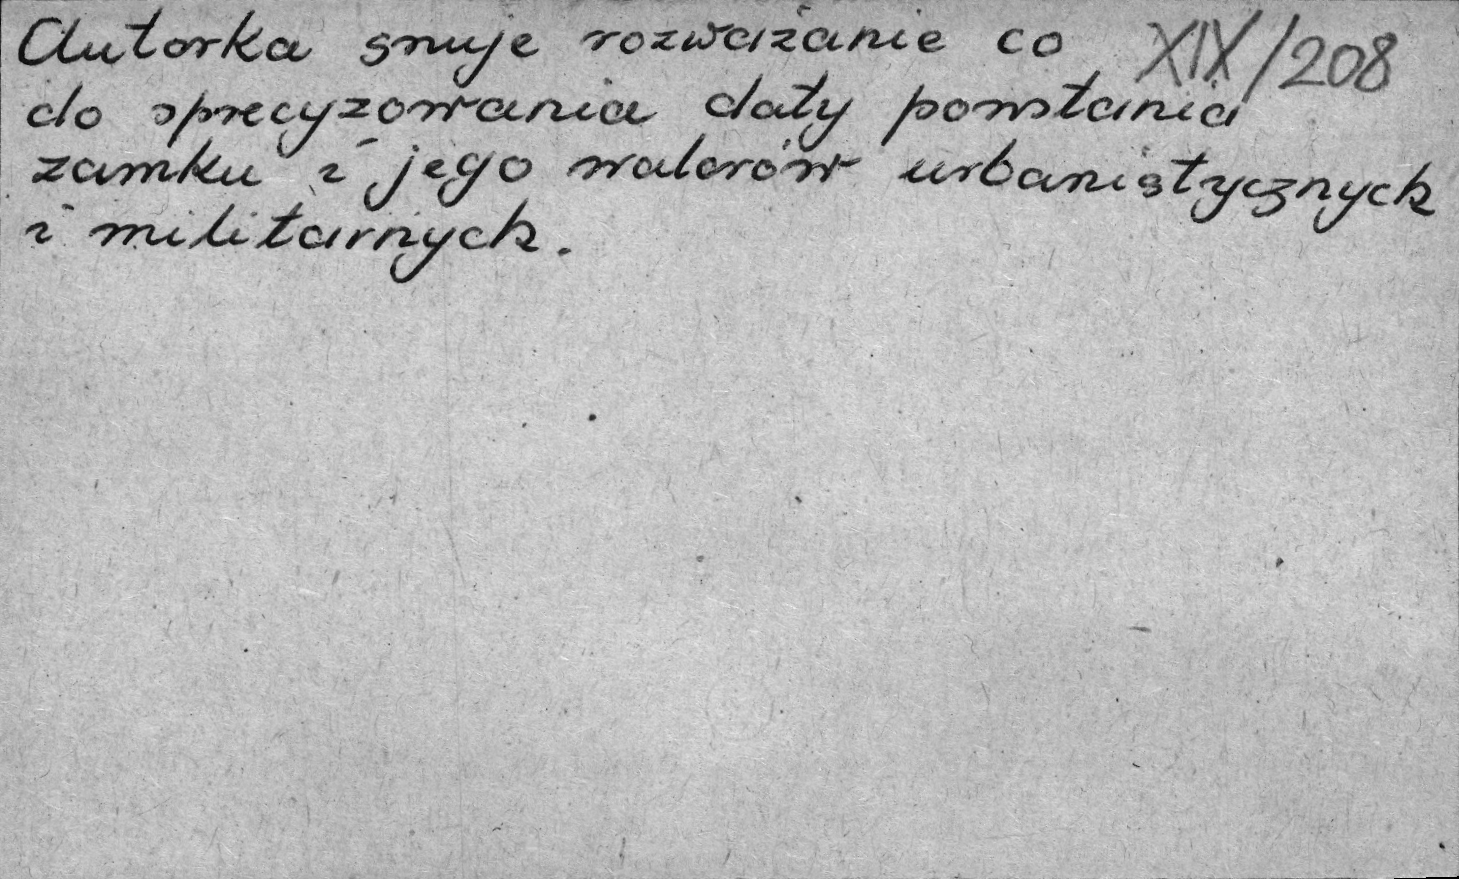 Autorka snuje rozważanie co XIX/208
do sprecyzowania daty powstania
zamku i jego walorów urbanistycznych
i militarnych.